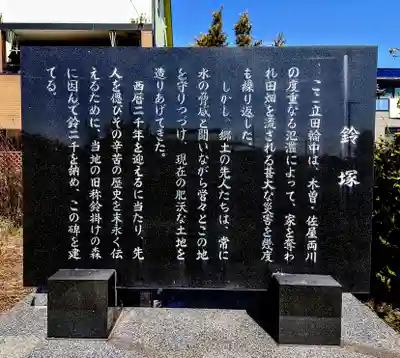 鈴塚
ここ立田輪中は、木曽・佐屋両川
の度重なる氾濫によって、家を奪わ
れ田畑を壊される甚大な災害を幾度
も繰り返した。
しかし、郷土の先人たちは、常に
水の脅威と闘いながら営々とこの地
を守りつづけ、現在の肥沃な土地を
造りあげてきた。
西暦二千年を迎えるに当たり、先
人を偲びその辛苦の歴史を末永く伝
えるために、当地の旧称鈴掛けの森
に因んで鈴二千を納め、この碑を建
てる。